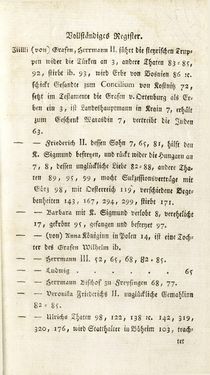 Vollständiges Register.
Zilli (von) Grafen, Herrmann II. führt die steyrischen Trup-
pen wider die Türken an 3, andere Thaten 83 = 85,
92, stirbt ib. 93, wird Erbe von Bosnien 86 ꝛc.
schickt Gesandte zum Concilium von Kostniz 72,
setzt im Testamente die Grafen v. Ortenburg als Er-
ben ein 3, ist Landeshauptmann in Krain 7, erhält
zum Geschenk Varasdin 7, vertreibt die Juden
63.
— — Friederich II. dessen Sohn 7, 65, 81, hilft den
K. Sigmund besreyen, und rückt wider die Hungarn an
7, 8, dessen unglückliche Liebe 82 = 88, andere Tha-
ten 89, 95, 99, macht Sukzessionsverträge mit
Görz 98, mit Oesterreich 119, verschiedene Bege-
benheiten 143, 167, 294, 299, stirbt 171.
— — Barbara mit K. Sigmund verlobt 8, verehelicht
17, gekrönt 95, gefangen und befreyet 97.
— — (von) Anna Königinn in Polen 14, ist eine Toch-
ter des Grafen Wilhelm ib.
— — Herrmann III. 52, 65, 68, 82 = 85.
— — Ludwig 65
— — Herrmann Bischof zu Freysingen 68, 77.
— — Veronika Friederichs II. unglückliche Gemahlinn
82 = 85.
— — Ulrichs Thaten 98, 122, 138 ꝛc. 142, 319,
320, 176, wird Statthalter in Böheim 103, trach-
tet